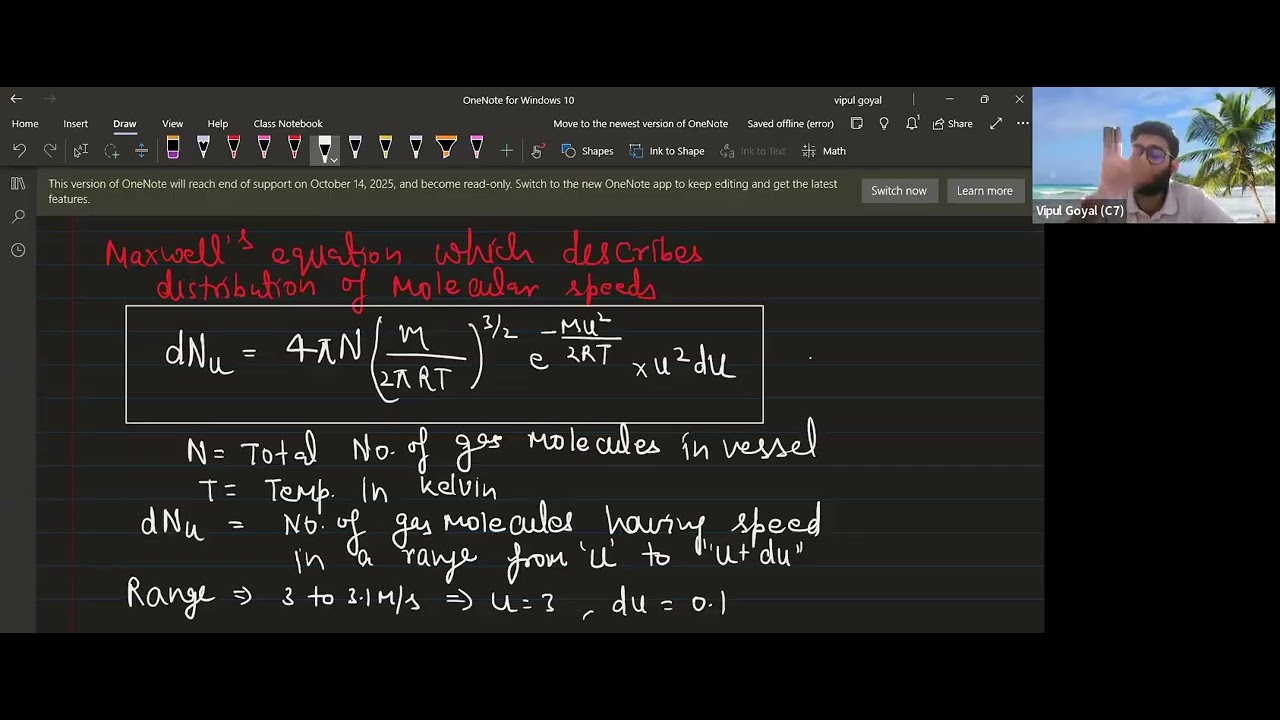 OneNote for Windows 10
vipul goyal
Home Insert Draw View Help Class Notebook
Move to the newest version of OneNote Saved offline (error) Share
Shapes Ink to Shape Ink to Text Math
This version of OneNote will reach end of support on October 14, 2025, and become read-only. Switch to the new OneNote app to keep editing and get the latest
features.
Switch now Learn more
Vipul Goyal (C7)
Maxwell's equation which describes
distribution of molecular speeds
dNu = 4πN (M/2πRT)^3/2 e^-Mu²/2RT × u² du
N = Total No. of gas molecules in vessel
T = Temp. in kelvin
dNu = No. of gas molecules having speed
in a range from 'u' to "u+du"
Range ⇒ 3 to 3.1 m/s ⇒ u = 3 , du = 0.1